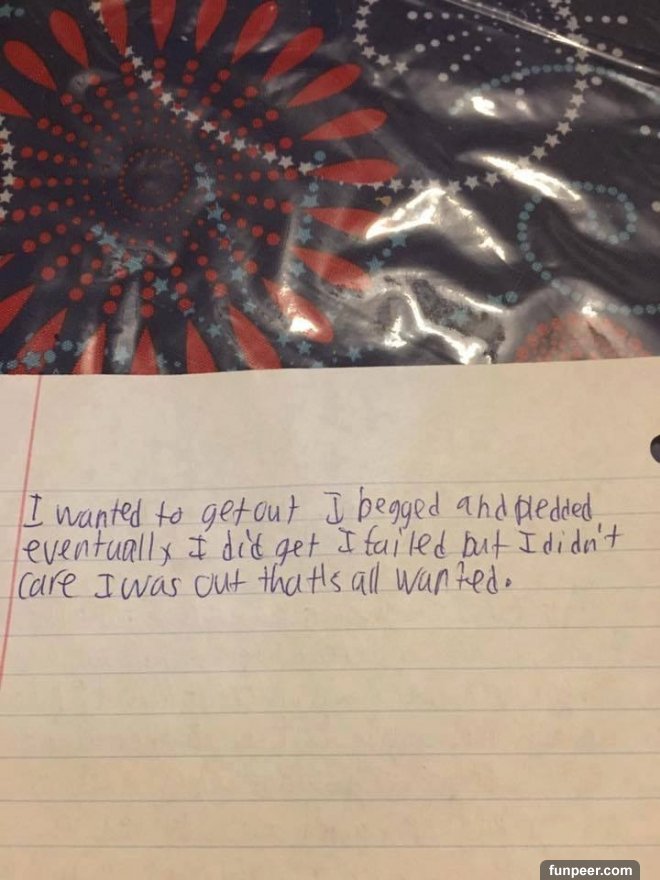 I wanted to get out I begged and pledded
eventually I did get I failed but I didn't
care I was out that's all wanted.
funpeer.com